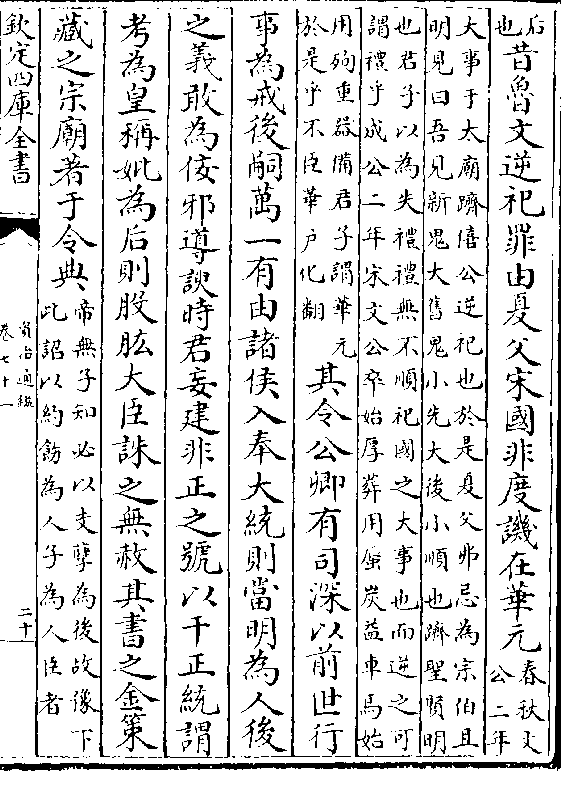 后
也
昔魯文逆祀罪由夏父宋國非度譏在華元
春秋文
公二年
大事于太廟躋僖公逆祀也於是夏父弗忌為宗伯且
明見曰吾見新鬼大舊鬼小先大後小順也躋聖賢明
也君子以為失禮禮無不順祀國之大事也而逆之可
謂禮乎成公二年宋文公卒始厚葬用蜃炭益車馬始
用殉重器備君子謂華元
於是乎不臣華户化翻
其令公卿有司深以前世行
事為戒後嗣萬一有由諸侯入奉大統則當明為人後
之義敢為佞邪導諛時君妄建非正之號以干正統謂
考為皇稱妣為后則股肱大臣誅之無赦其書之金策
藏之宗廟著于令典
帝無子知必以支孽為後故豫下
此詔以約飭為人子為人臣者
欽定四庫全書
資治通鑑
卷七十一
二十